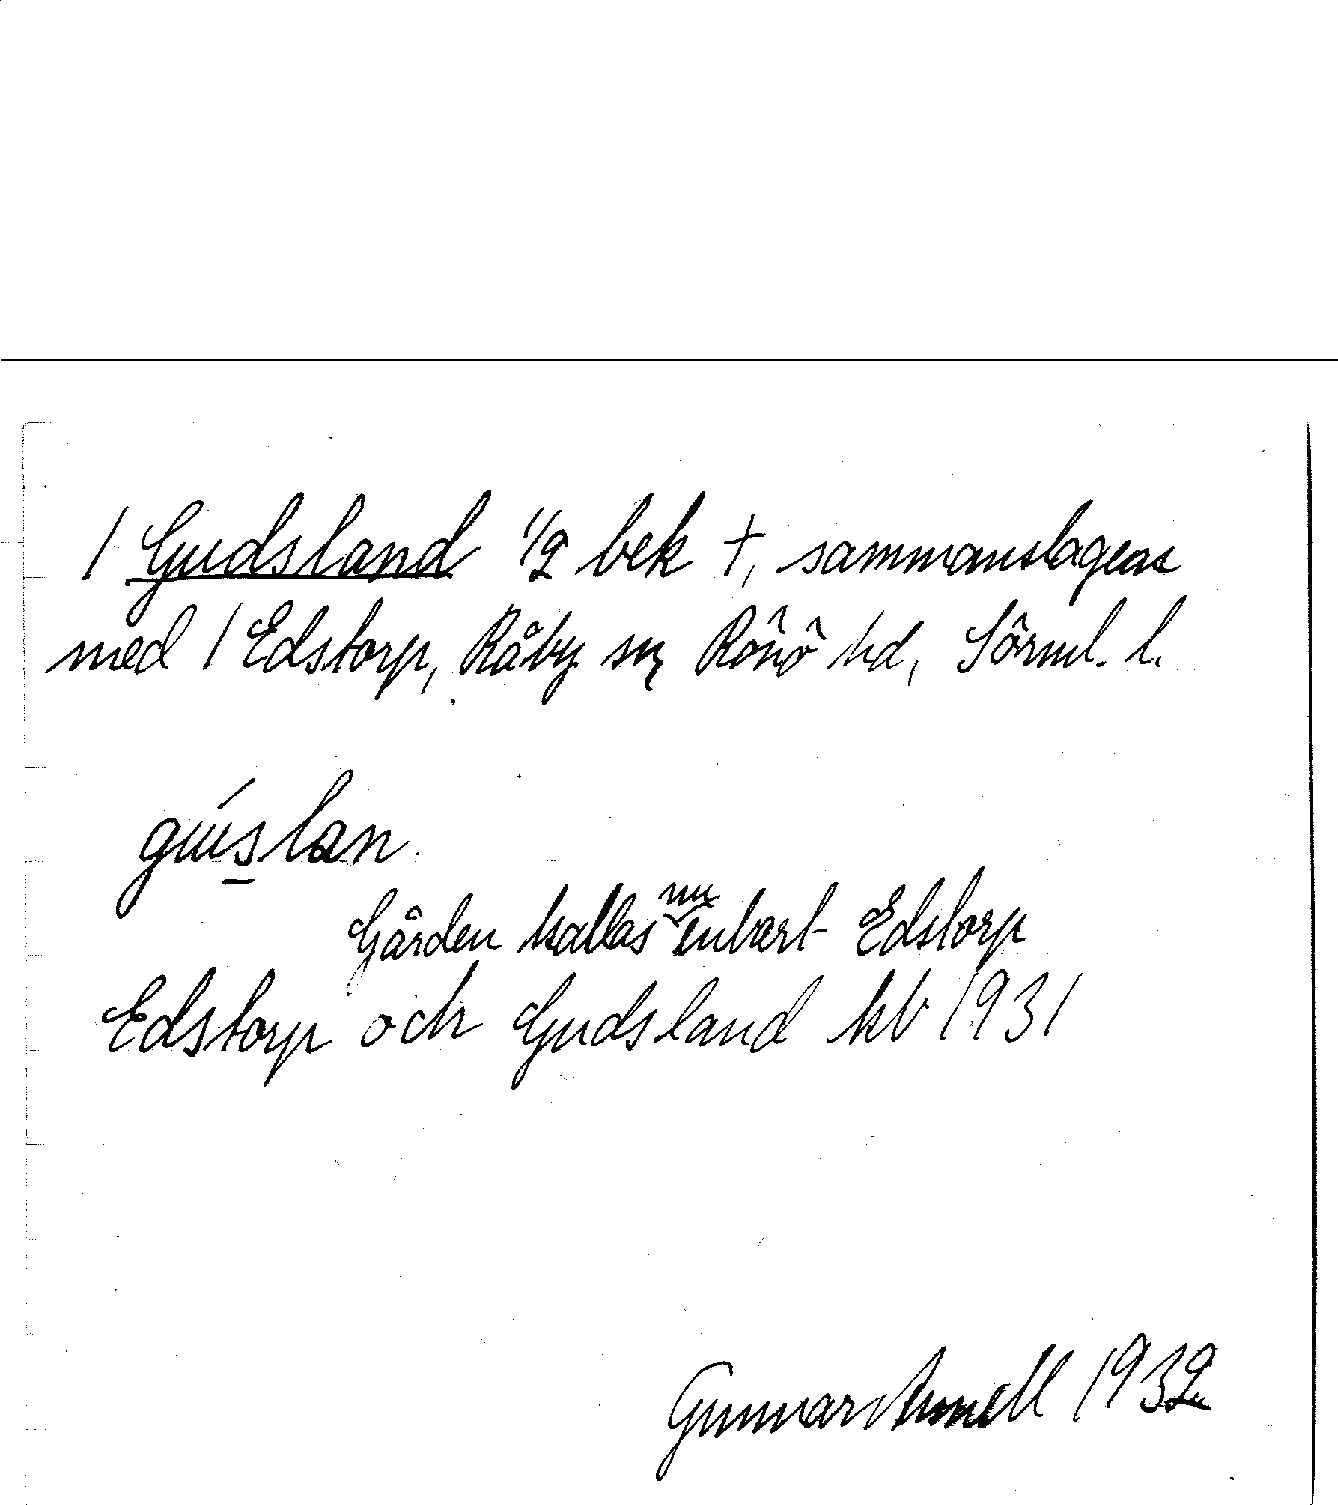 1 Gudsland 1/2 bek †, sammanslagens
med 1 Edstorp, Råby sn, Rönö hd, Sörml. l.
gúslan
Gården kallas nu enbart Edstorp
Edstorp och Gudsland kb 1931
Gunnar 1932